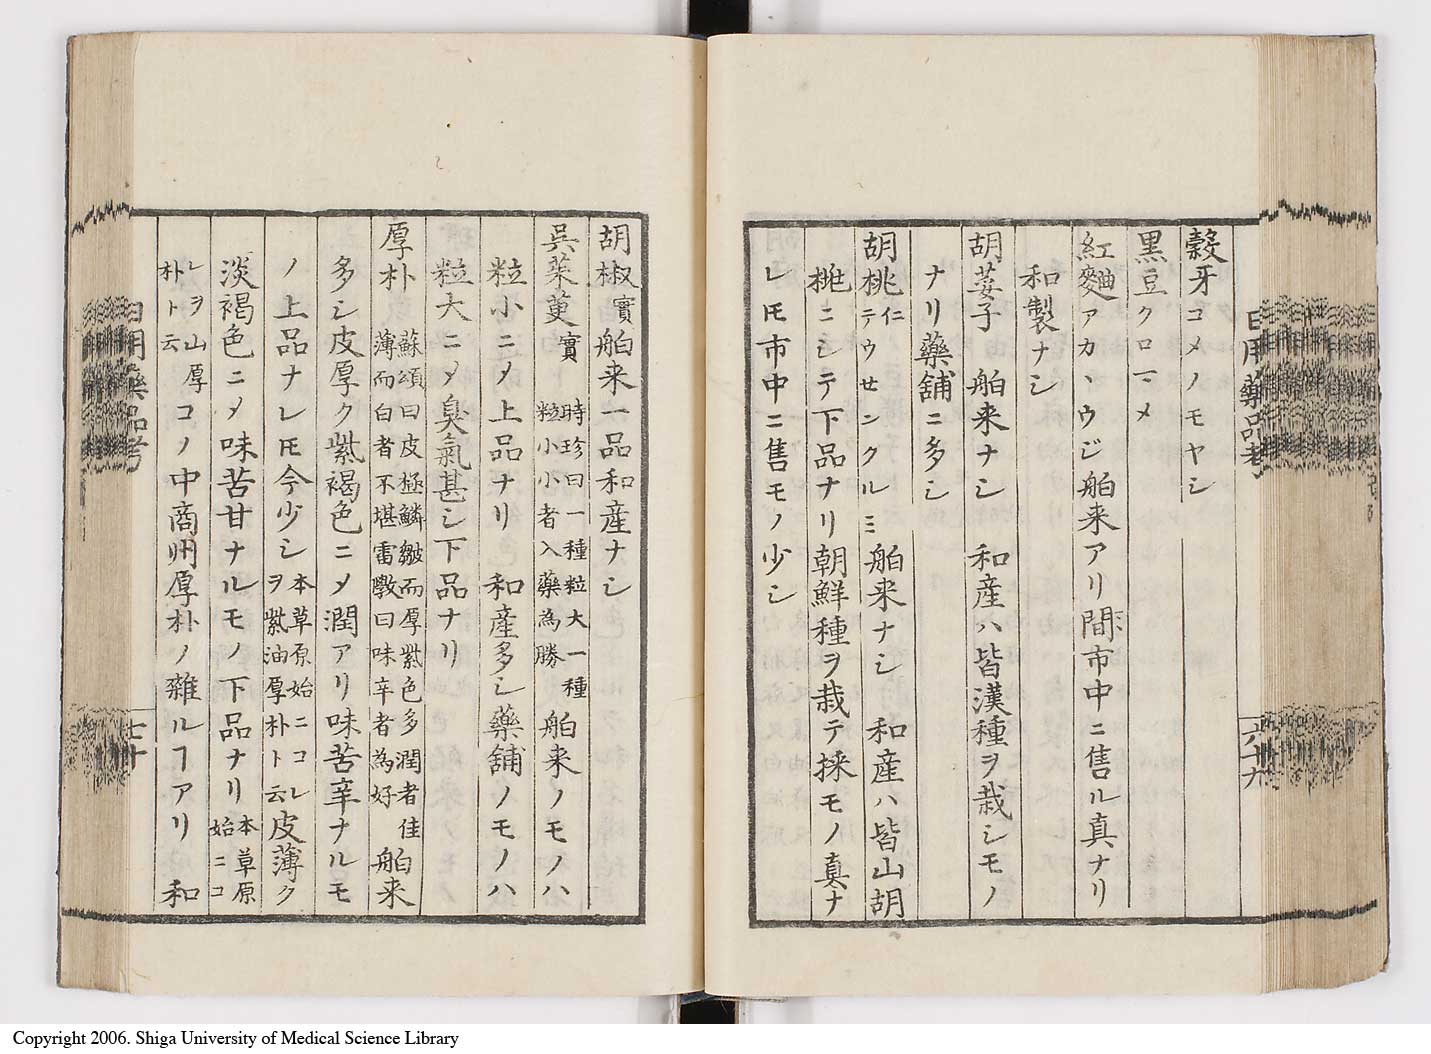 日用藥品考
六十九
穀牙コメノモヤシ
黒豆クロマメ
紅麹アカヽウジ舶来アリ間〻市中ニ售ル真ナリ
和製ナシ
胡荽子 舶来ナシ 和産ハ皆漢種ヲ栽シモノ
ナリ藥舗ニ多シ
胡桃仁テウセンクルミ 舶来ナシ 和産ハ皆山胡
桃ニシテ下品ナリ朝鮮種ヲ栽テ採モノ真ナ
レ𪜈市中ニ售モノ少シ
胡椒實 舶来一品和産ナシ
呉茱萸實 時珍曰一種粒大一種
粒小小者入藥為勝 舶来ノモノハ
粒小ニ〆上品ナリ 和産多シ藥舗ノモノハ
粒大ニ〆臭氣甚シ下品ナリ
厚朴 蘇頌曰皮極鱗皺而厚紫色多潤者佳
薄而白者不堪雷斆曰味辛者為好 舶来
多シ皮厚ク紫褐色ニ〆潤アリ味苦辛ナルモ
ノ上品ナレ𪜈今少シ 本草原始ニコレ
ヲ紫油厚朴ト云 皮薄ク
淡褐色ニ〆味苦甘ナルモノ下品ナリ 本草原
始ニコ
レヲ山厚
朴ト云 コノ中商州厚朴ノ雜ルヿアリ 和
日用藥品考
七十
Copyright 2006. Shiga University of Medical Science Library